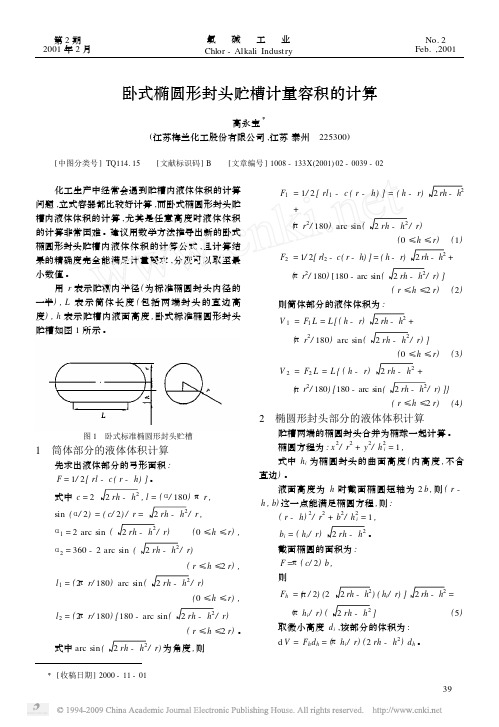 第 2 期
2001 年 2 月
氯 碱 工 业
Chlor - Alkali Industry
No. 2
Feb. ,2001
卧式椭圆形封头贮槽计量容积的计算
高永宝*
(江苏梅兰化工股份有限公司,江苏 泰州 225300)
[中图分类号] TQ114. 15 [文献标识码] B [文章编号] 1008 - 133X(2001) 02 - 0039 - 02
化工生产中经常会遇到贮槽内液体体积的计算
问题,立式容器都比较好计算,而卧式椭圆形封头贮
槽内液体体积的计算,尤其是任意高度时液体体积
的计算非常困难。建议用数学方法推导出新的卧式
椭圆形封头贮槽内液体体积的计算公式,且计算结
果的精确度完全能满足计量要求,分度可以取至最
小数值。
用 r 表示贮槽内半径(为标准椭圆封头内径的
一半) , L 表示筒体长度(包括两端封头的直边高
度) , h 表示贮槽内液面高度,卧式标准椭圆形封头
贮槽如图 1 所示。
r
h
L
图 1 卧式标准椭圆形封头贮槽
1 筒体部分的液体体积计算
先求出液体部分的弓形面积:
F = 1/ 2[ rl - c( r - h) ]。
式中 c = 2 √2 rh - h² , l = (α/ 180) π r ,
sin (α/ 2) = ( c/ 2)/ r = √2 rh - h²/ r ,
α₁ = 2 arc sin ( √2 rh - h²/ r) (0 ≤h ≤r) ,
α₂ = 360 - 2 arc sin ( √2 rh - h²/ r)
( r ≤h ≤2 r) ,
l₁ = (2π r/ 180) arc sin( √2 rh - h²/ r)
(0 ≤h ≤r) ,
l₂ = (2π r/ 180) [180 - arc sin( √2 rh - h²/ r)
( r ≤h ≤2 r) 。
式中 arc sin( √2 rh - h²/ r) 为角度,则
F₁ = 1/ 2[ rl₁ - c( r - h) ] = ( h - r) √2 rh - h²
+
(π r²/ 180) arc sin( √2 rh - h²/ r)
(0 ≤h ≤r) (1)
F₂ = 1/ 2[ rl₂ - c( r - h) ] = ( h - r) √2 rh - h² +
(π r²/ 180) [180 - arc sin( √2 rh - h²/ r) ]
( r ≤h ≤2 r) (2)
则筒体部分的液体体积为:
V₁ = F₁ L = L[ ( h - r) √2 rh - h² +
(π r²/ 180) arc sin( √2 rh - h²/ r) ]
(0 ≤h ≤r) (3)
V₂ = F₂ L = L{ ( h - r) √2 rh - h² +
(π r²/ 180) [180 - arc sin( √2 rh - h²/ r) ]}
( r ≤h ≤2 r) (4)
2 椭圆形封头部分的液体体积计算
贮槽两端的椭圆封头合并为椭球一起计算。
椭圆方程为: x²/ r² + y²/ hᵢ² = 1 ,
式中 hᵢ 为椭圆封头的曲面高度(内高度,不含
直边) 。
液面高度为 h 时截面椭圆短轴为 2 b ,则 ( r -
h , b) 这一点能满足椭圆方程,则:
( r - h)²/ r² + b²/ hᵢ² = 1 ,
bᵢ = ( hᵢ/ r) √2 rh - h² 。
截面椭圆的面积为:
F =π( c/ 2) b ,
则
Fₕ = (π/ 2) (2 √2 rh - h²) ( hᵢ/ r) [ √2 rh - h² =
(π hᵢ/ r) ( √2 rh - h² ] (5)
取微小高度 dᵢ ,该部分的体积为:
d V = Fₕdₕ = (π hᵢ/ r) (2 rh - h²) dₕ 。
* [收稿日期] 2000 - 11 - 01
39
© 1994-2009 China Academic Journal Electronic Publishing House. All rights reserved. http://www.cnki.net